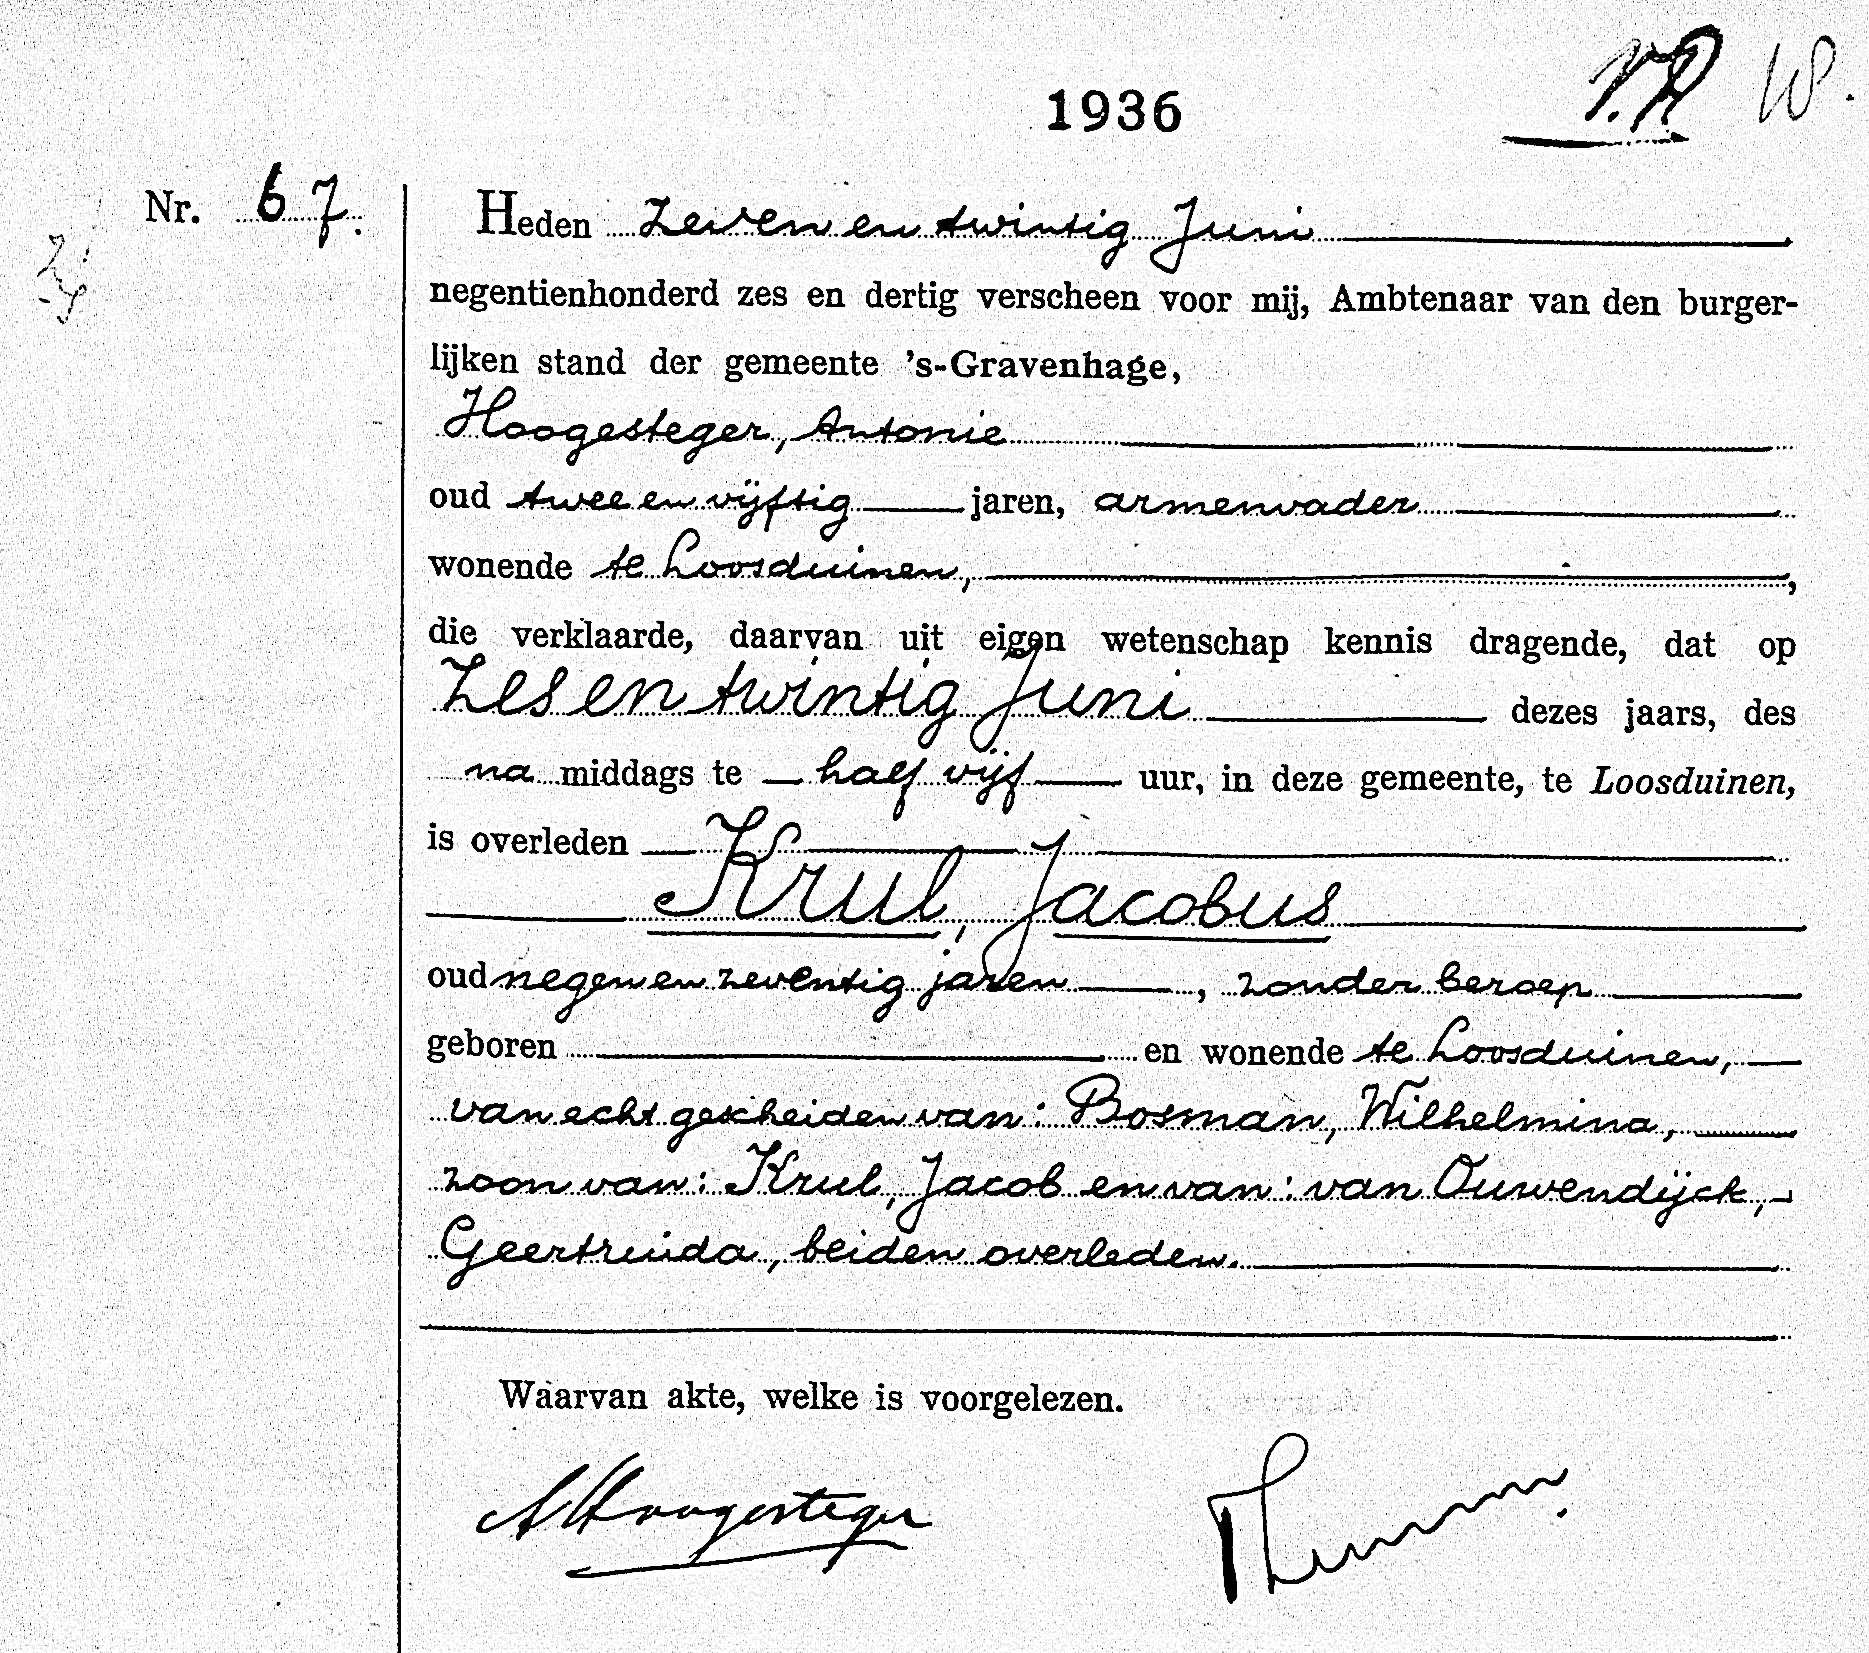 1936
Nr. 67.
Heden zeven en twintig Juni
negentienhonderd zes en dertig verscheen voor mij, Ambtenaar van den burger-
lijken stand der gemeente 's-Gravenhage,
Hoogesteger, Antonie
oud twee en vijftig jaren, armenvader
wonende te Loosduinen,,
die verklaarde, daarvan uit eigen wetenschap kennis dragende, dat op
zes en twintig Juni dezes jaars, des
na middags te half vijf uur, in deze gemeente, te Loosduinen,
is overleden
Krul, Jacobus
oud negen en zeventig jaren, zonder beroep
geboren en wonende te Loosduinen,
van echt gescheiden van: Bosman, Wilhelmina,
zoon van: Krul, Jacob en van: van Ouwendijck,
Geertruida, beiden overleden.
Waarvan akte, welke is voorgelezen.
AHoogesteger